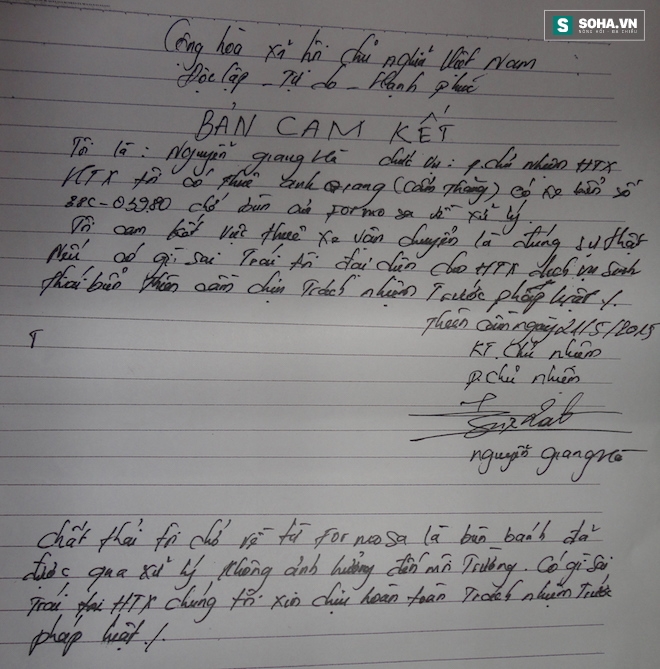 SOHA.VN
Cộng hòa xã hội chủ nghĩa Việt Nam
Độc lập - Tự do - Hạnh phúc
BẢN CAM KẾT
Tôi là: Nguyễn Giang Hà chức vụ: p. chủ nhiệm HTX
HTX tôi có thuê anh Quang (Cẩm Thăng) có xe biển số
chở bùn của Formosa về xử lý.
Tôi cam kết việc thuê xe vận chuyển là đúng sự thật
Nếu có gì sai Trái tôi đại diện cho HTX dịch vụ sinh
thái biển thiên cầm chịu Trách nhiệm Trước pháp luật /.
Thiên Cầm ngày 21/5/2015
KT. Chủ nhiệm
P. chủ nhiệm
Nguyễn Giang Hà
T
Chất thải tôi chở về từ Formosa là bùn bánh đã
được qua xử lý không ảnh hưởng đến môi Trường. Có gì sai
Trái tại HTX chúng tôi xin chịu hoàn toàn Trách nhiệm Trước
pháp luật /.